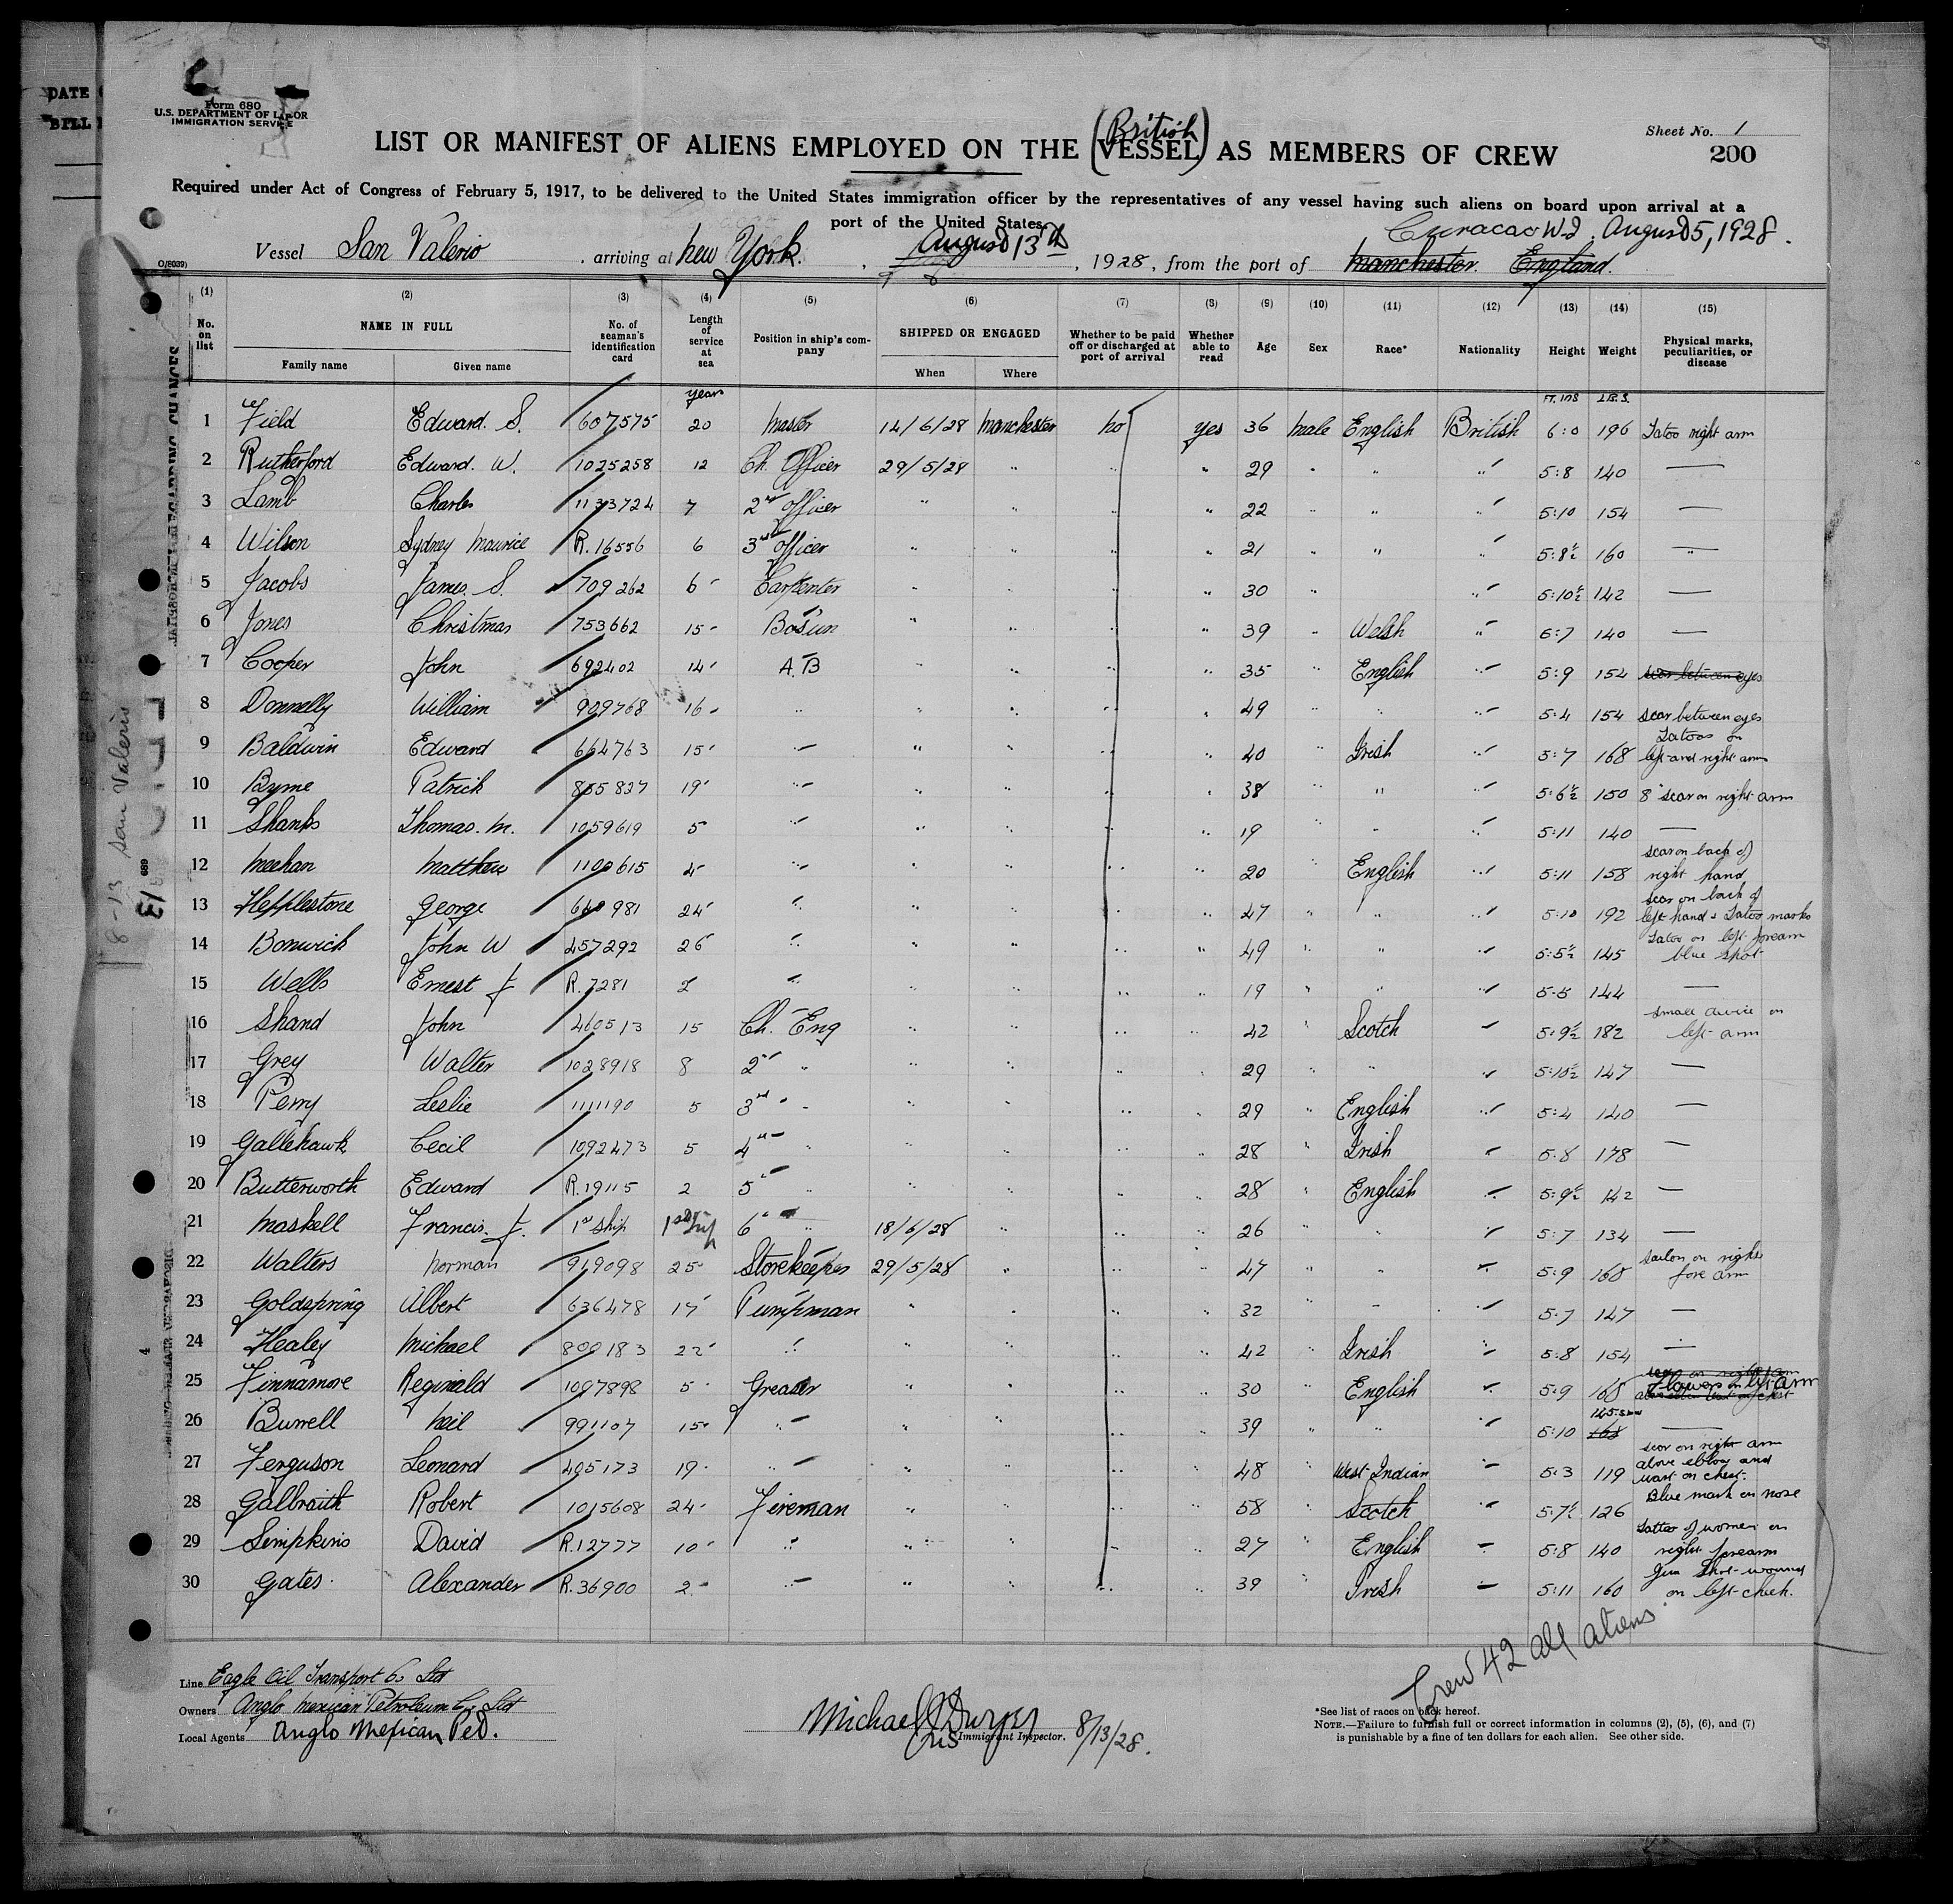 Form 680
U.S. DEPARTMENT OF LABOR
IMMIGRATION SERVICE
Sheet No. 1
200
(British)
LIST OR MANIFEST OF ALIENS EMPLOYED ON THE VESSEL AS MEMBERS OF CREW
Required under Act of Congress of February 5, 1917, to be delivered to the United States immigration officer by the representatives of any vessel having such aliens on board upon arrival at a
port of the United States
Curacao W.I. August 5, 1928.
Vessel San Valerio, arriving at New York. August 13th, 1928, from the port of Manchester. England.
(1) (2) (3) (4) (5) (6) (7) (8) (9) (10) (11) (12) (13) (14) (15)
No. on list NAME IN FULL Family name Given name No. of seaman's identification card Length of service at sea Position in ship's company SHIPPED OR ENGAGED When Where Whether to be paid off or discharged at port of arrival Whether able to read Age Sex Race* Nationality Height Weight Physical marks, peculiarities, or disease
years FT. INS LBS.
1 Field Edward. S. 607575 20 Master 14/6/28 Manchester No yes 36 Male English British 6:0 196 Tatoo right arm
2 Rutherford Edward. W. 1025258 12 Ch. Officer 29/5/28 " " " 29 " " " 5:8 140 —
3 Lamb Charles 1133724 7 2nd Officer " " " " 22 " " " 5:10 154 —
4 Wilson Sydney Maurice R.16556 6 3rd Officer " " " " 21 " " " 5:8½ 160 "
5 Jacobs James. S. 709262 6 Carpenter " " " " 30 " " 5:10½ 142 —
6 Jones Christmas 753662 15 Bosun " " " " 39 " Welsh " 5:7 140 —
7 Cooper John 692402 14 A.B " " " " 35 " English " 5:9 154 scar between eyes
8 Donnelly William 909768 16 " " " " " 49 " " " 5:4 154 scar between eyes
9 Baldwin Edward 664763 15 " " " " " 40 " Irish " 5:7 168 Tatoos on left and right arms
10 Byrne Patrick 855827 19 " " " " " 38 " " " 5:6½ 150 8" scar on right arm
11 Shanks Thomas. M. 1059619 5 " " " " " 19 " " 5:11 140 —
12 Meehan Matthew 1100615 4 " " " " " 20 " English " 5:11 158 scar on back of right hand
13 Hepplestone George 640981 24 " " " " " 47 " " " 5:10 192 scar on back of left hand & Tatoo marks
14 Bonwick John W 457292 26 " " " " " 49 " " " 5:5½ 145 Tatoo on left forearm blue spot
15 Wells Ernest J R.7281 2 " " " " " 19 " " " 5:5 144 —
16 Shand John 460513 15 Ch. Eng " " " " 42 " Scotch " 5:9½ 182 small on left arm
17 Grey Walter 1028918 8 2nd " " " " " 29 " " " 5:10½ 147 —
18 Perry Leslie 1111190 5 3rd " " " " " 29 " English " 5:4 140 —
19 Gallehawk Cecil 1092473 5 4th " " " " " 28 " Irish " 5:8 178 —
20 Butterworth Edward R.19115 2 5" " " " " " 28 " English " 5:9½ 142 —
21 Maskell Francis. J. 1st Ship 1st Trip 6" " 18/6/28 " " " 26 " " " 5:7 134 —
22 Walters Norman 919098 25 Storekeeper 29/5/28 " " " 47 " " " 5:9 168 sailor on right fore arm
23 Goldspring Albert 636478 17 Pumpman " " " " 32 " " " 5:7 147 —
24 Healey Michael 800183 22 " " " " " 42 " Irish " 5:8 154 —
25 Finnamore Reginald 1097898 5 Greaser " " " " 30 " English " 5:9 168 Flowers on left arm
26 Burrell Neil 991107 15 " " " " " 39 " " " 5:10 168 —
27 Ferguson Leonard 405173 19 " " " " " 48 " West Indian " 5:3 119 scar on right arm above elbow and wart on chest.
28 Galbraith Robert 1015608 24 Fireman " " " " 58 " Scotch " 5:7½ 126 Blue mark on nose
29 Simpkins David R.12777 10 " " " " " 27 " English " 5:8 140 Tattoo of women on right forearm
30 Gates Alexander R.36900 2 " " " " " 39 " Irish " 5:11 160 Gun Shot wound on left cheek.
Crew 42 all aliens
Line Eagle Oil Transport Co Ltd
Owners Anglo Mexican Petroleum Co Ltd
Local Agents Anglo Mexican Pet.
Michael Dwyer 8/13/28.
Immigrant Inspector.
*See list of races on back hereof.
NOTE.—Failure to furnish full or correct information in columns (2), (5), (6), and (7)
is punishable by a fine of ten dollars for each alien. See other side.
8-13 San Valerio
13
689
DATE
BILL